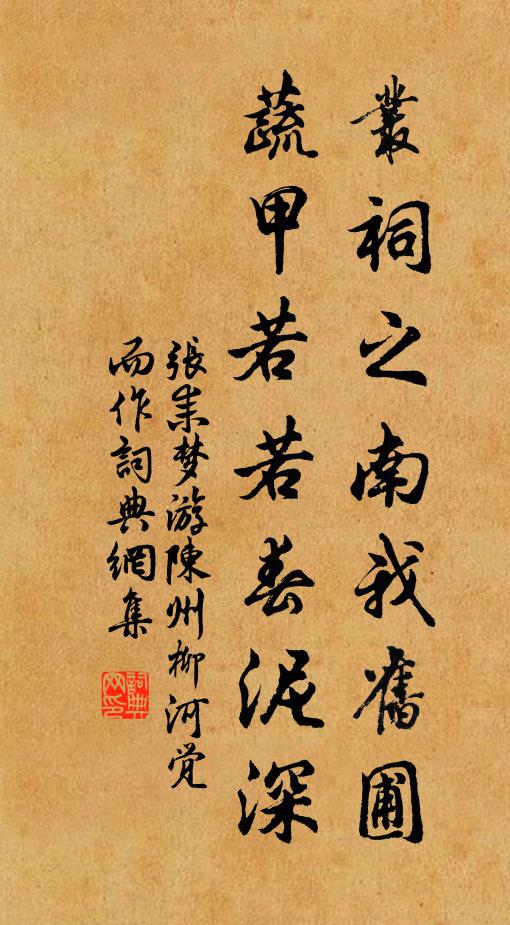 叢祠之南我舊圃
蔬甲若若春泥深
張耒梦游陳州柳河觉
而作詞典網集
詞典网印